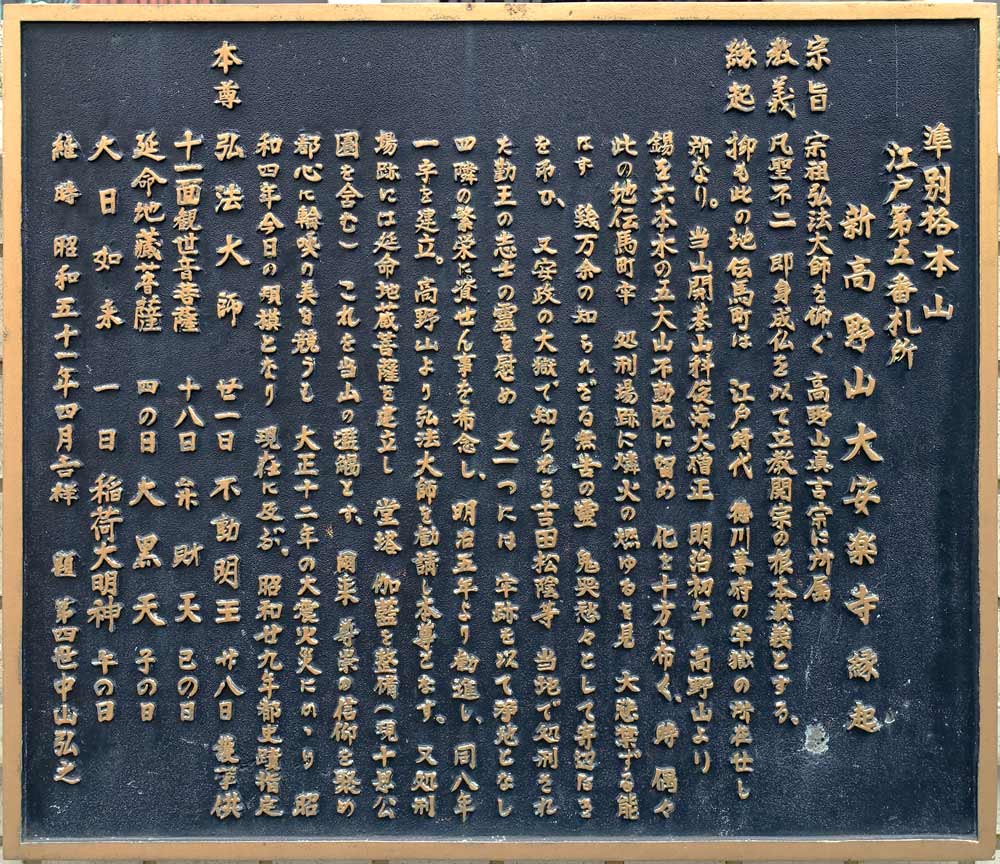 準別格本山
江戸第五番札所
新高野山大安楽寺縁起
宗旨 宗祖弘法大師を仰ぐ 高野山真言宗に所属
教義 凡聖不二 即身成仏を以て立教開宗の根本教義とする、
縁起 抑も此の地伝馬町は 江戸時代 徳川幕府の牢獄の所在せし
所なり。当山開基山科俊海大僧正 明治初年 高野山より
錫を六本木の五大山不動院に留め 化を十方に布く、時 偶々
此の地伝馬町牢 処刑場跡に燐火の燃ゆるを見 大悲禁ずる能
はず 幾万余の知られざる無苦の霊 鬼哭愁々として寄辺なき
を弔ひ、又安政の大獄で知られる吉田松陰等 当地で処刑され
た勤王の志士の霊を慰め 又一つには 牢跡を以て浄地となし
四隣の繁栄に資せん事を希念し、明治五年より勧進し、同八年
一宇を建立。高野山より弘法大師を勧請し本尊となす。又処刑
場跡には延命地蔵菩薩を建立し 堂塔 伽藍を整備(現十思公
園を含む) これを当山の濫觴とす、爾来 尊崇の信仰を聚め
都心に輪奐の美を競うも 大正十二年の大震火災にかゝり 昭
和四年今日の規模となり 現在に及ぶ。昭和廿九年都史蹟指定
本尊 弘法大師 廿一日 不動明王 廿八日 護摩供
十一面観世音菩薩 十八日 弁財天 巳の日
延命地蔵菩薩 四の日 大黒天 子の日
大日如来 一日 稲荷大明神 午の日
維時 昭和五十一年四月吉祥 題 第四世中山弘之